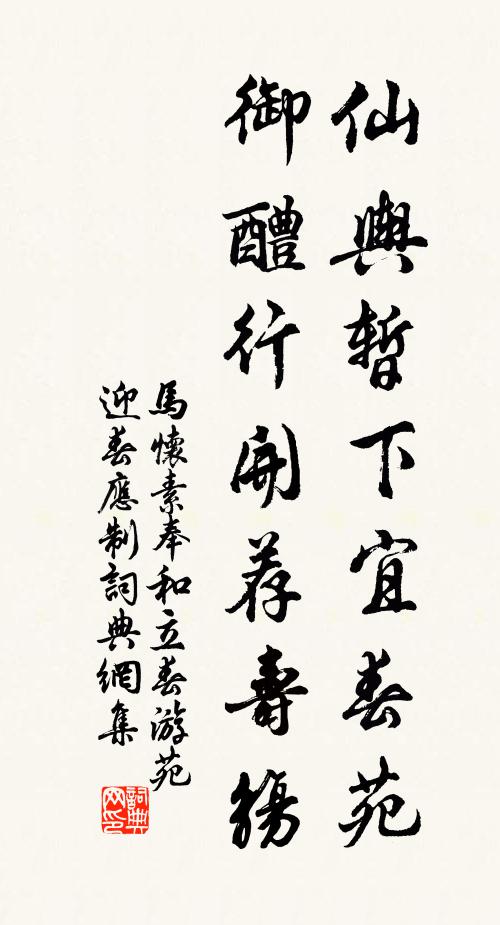 仙輿暫下宜春苑
御醴行開荐壽觴
馬懷素奉和立春游苑
迎春應制詞典網集
詞典网印